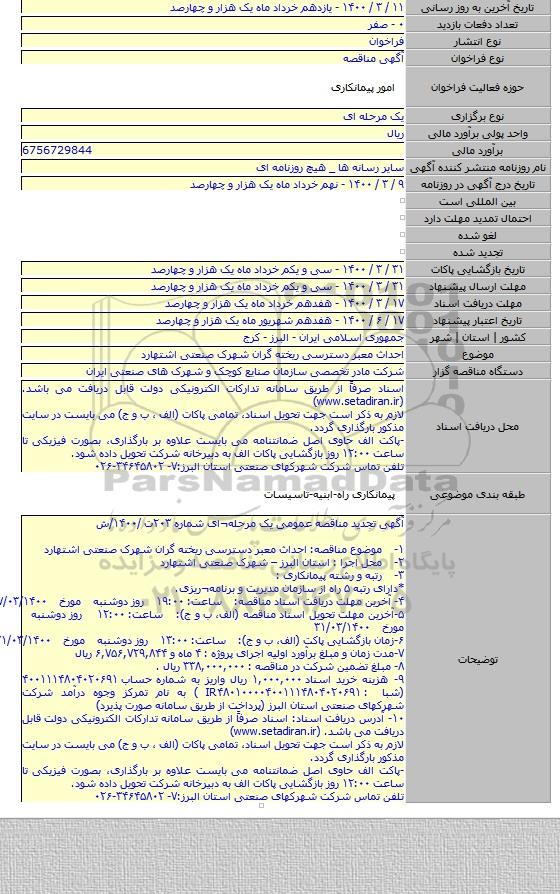 تاریخ آخرین به روز رسانی ۱۱ / ۳ / ۱۴۰۰ - یازدهم خرداد ماه یک هزار و چهارصد
تعداد دفعات بازدید ۰ - صفر
نوع انتشار فراخوان
نوع فراخوان آگهی مناقصه
حوزه فعالیت فراخوان امور پیمانکاری
نوع برگزاری یک مرحله ای
واحد پولی برآورد مالی ریال
برآورد مالی 6756729844
نام روزنامه منتشر کننده آگهی سایر رسانه ها _ هیچ روزنامه ای
تاریخ درج آگهی در روزنامه ۹ / ۳ / ۱۴۰۰ - نهم خرداد ماه یک هزار و چهارصد
بین المللی است
احتمال تمدید مهلت دارد
لغو شده
تجدید شده
تاریخ بازگشایی پاکات ۳۱ / ۳ / ۱۴۰۰ - سی و یکم خرداد ماه یک هزار و چهارصد
مهلت ارسال پیشنهاد ۳۱ / ۳ / ۱۴۰۰ - سی و یکم خرداد ماه یک هزار و چهارصد
مهلت دریافت اسناد ۱۷ / ۳ / ۱۴۰۰ - هفدهم خرداد ماه یک هزار و چهارصد
تاریخ اعتبار پیشنهاد ۱۷ / ۶ / ۱۴۰۰ - هفدهم شهریور ماه یک هزار و چهارصد
کشور | استان | شهر جمهوری اسلامی ایران - البرز - کرج
موضوع احداث معبر دسترسی ریخته گران شهرک صنعتی اشتهارد
دستگاه مناقصه گزار شرکت مادر تخصصی سازمان صنایع کوچک و شهرک های صنعتی ایران
محل دریافت اسناد
اسناد صرفاً از طریق سامانه تدارکات الکترونیکی دولت قابل دریافت می باشد.
(www.setadiran.ir)
لازم به ذکر است جهت تحویل اسناد، تمامی پاکات (الف ، ب و ج) می بایست در سایت
مذکور بارگذاری گردد.
-پاکت الف حاوی اصل ضمانتنامه می بایست علاوه بر بارگذاری، بصورت فیزیکی تا
ساعت ۱۲:۰۰ روز بازگشایی پاکات الف به دبیرخانه شرکت تحویل داده شود.
تلفن تماس شرکت شهرکهای صنعتی استان البرز:۷- ۳۴۶۴۵۸۰۲-۰۲۶
طبقه بندی موضوعی پیمانکاری راه-ابنیه-تاسیسات
توضیحات
آگهی تجدید مناقصه عمومی یک مرحله¬ای شماره ۲۰۳ت /۱۴۰۰/ش
۱- موضوع مناقصه: احداث معبر دسترسی ریخته گران شهرک صنعتی اشتهارد
۲- محل اجرا : استان البرز – شهرک صنعتی اشتهارد
۳- رتبه و رشته پیمانکاری :
*دارای رتبه ۵ راه از سازمان مدیریت و برنامه¬ریزی
۴- آخرین مهلت دریافت اسناد مناقصه: ساعت: ۱۹:۰۰ روز دوشنبه مورخ ۷/۰۳/۱۴۰۰
۵-آخرین مهلت تحویل اسناد مناقصه (الف، ب و ج): ساعت: ۱۲:۰۰ روز دوشنبه
مورخ ۳۱/۰۳/۱۴۰۰
۶-زمان بازگشایی پاکت (الف، ب و ج): ساعت: ۱۳:۰۰ روز دوشنبه مورخ ۱/۰۳/۱۴۰۰
۷-مدت زمان و مبلغ برآورد اولیه اجرای پروژه : ۴ ماه و ۶,۷۵۶,۷۲۹,۸۴۴ ریال
۸- مبلغ تضمین شرکت در مناقصه : ۳۳۸,۰۰۰,۰۰۰ ریال .
۹- هزینه خرید اسناد ۱,۰۰۰,۰۰۰ ریال واریز به شماره حساب ۴۰۰۱۱۱۴۸۰۴۰۲۰۶۹۱
(شبا : IR۴۸۰۱۰۰۰۰۴۰۰۱۱۱۴۸۰۴۰۲۰۶۹۱ ) به نام تمرکز وجوه درآمد شرکت
شهرکهای صنعتی استان البرز (پرداخت از طریق سامانه صورت پذیرد)
۱۰- آدرس دریافت اسناد: اسناد صرفاً از طریق سامانه تدارکات الکترونیکی دولت قابل
دریافت می باشد. (www.setadiran.ir)
لازم به ذکر است جهت تحویل اسناد، تمامی پاکات (الف ، ب و ج) می بایست در سایت
مذکور بارگذاری گردد.
-پاکت الف حاوی اصل ضمانتنامه می بایست علاوه بر بارگذاری، بصورت فیزیکی تا
ساعت ۱۲:۰۰ روز بازگشایی پاکات الف به دبیرخانه شرکت تحویل داده شود.
تلفن تماس شرکت شهرکهای صنعتی استان البرز:۷- ۳۴۶۴۵۸۰۲-۰۲۶
ParsNamadData